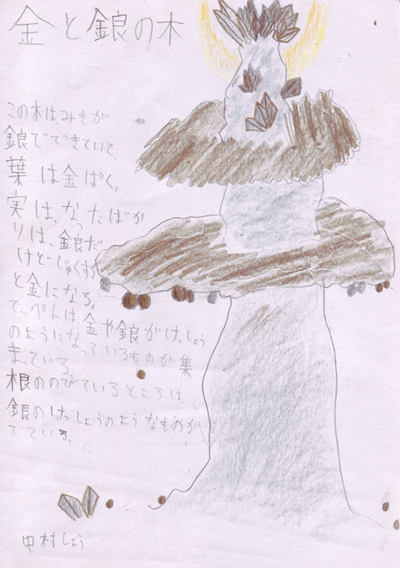 金と銀の木
この木は、みきが
銀でできていて、
葉は金ぱく。
実は、なったばか
りは、銀だ
けどじゅくす
と金になる。
てっぺんは金や銀がけっしょう
のようになっているものが集
まっている。
根ののびているところは
銀のけっしょうのようなものが
でている。
中村しょう